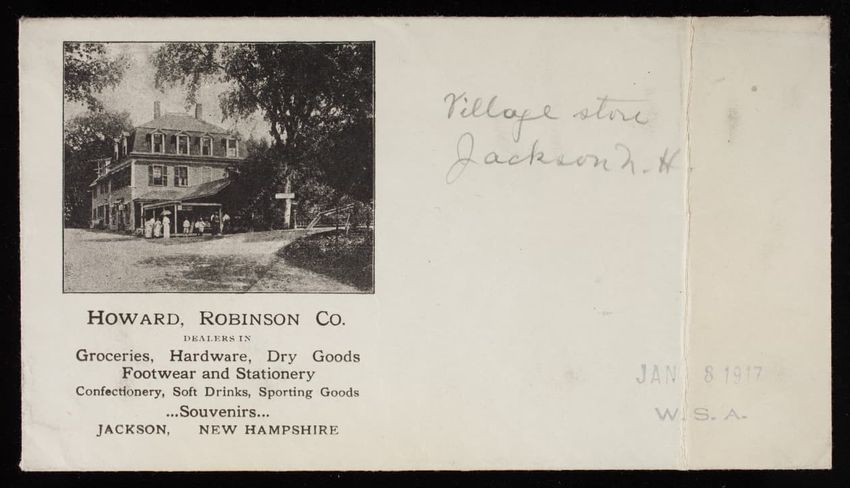 Village store
Jackson N. H.
HOWARD, ROBINSON CO.
DEALERS IN
Groceries, Hardware, Dry Goods
Footwear and Stationery
Confectionery, Soft Drinks, Sporting Goods
...Souvenirs...
JACKSON, NEW HAMPSHIRE
JAN 8 1917
W. S. A.